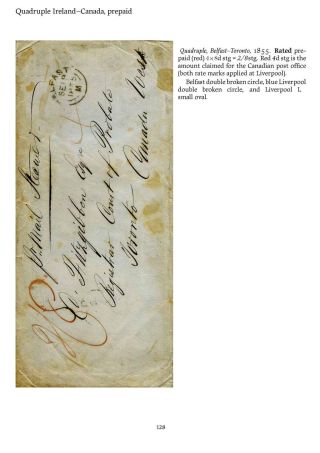 Quadruple Ireland–Canada, prepaid
Quadruple, Belfast–Toronto, 1855. Rated pre-
paid (red) 4×8d stg = 2/8stg. Red 4d stg is the
amount claimed for the Canadian post office
(both rate marks applied at Liverpool).
Belfast double broken circle, blue Liverpool
double broken circle, and Liverpool L
small oval.
Pr Mail Steamer
C. Fitzgibbon Esqr
Registrar Court of Probate
Toronto
Canada West
128